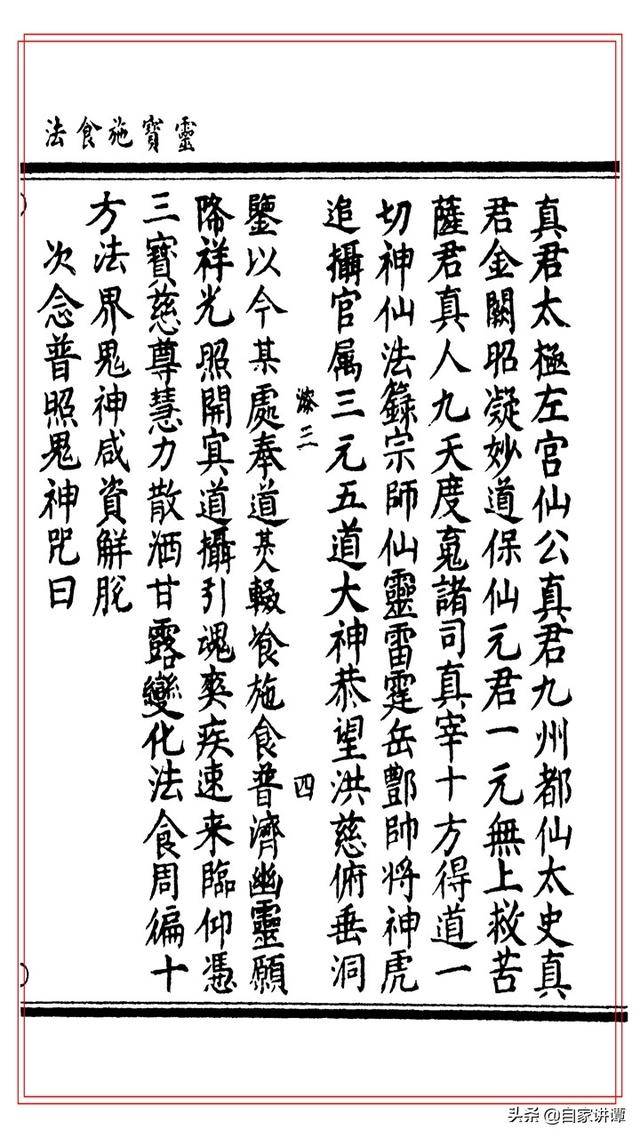 靈寶施食法
真君太極左宮仙公真君九州都仙太史真
君金闕昭凝妙道保仙元君一元無上救苦
薩君真人九天度䰟諸司真宰十方得道一
切神仙法籙宗師仙靈雷霆岳酆帥將神虎
追攝官属三元五道大神恭望洪慈俯垂洞
三 四
鑒以今某處奉道某人輟飡施食普濟幽靈願
降祥光照開冥道攝引魂爽疾速来臨仰憑
三寶慈尊慧力散洒甘露變化法食周徧十
方法界鬼神咸資解脫
次念普照鬼神咒曰
头条 @自家讲谭